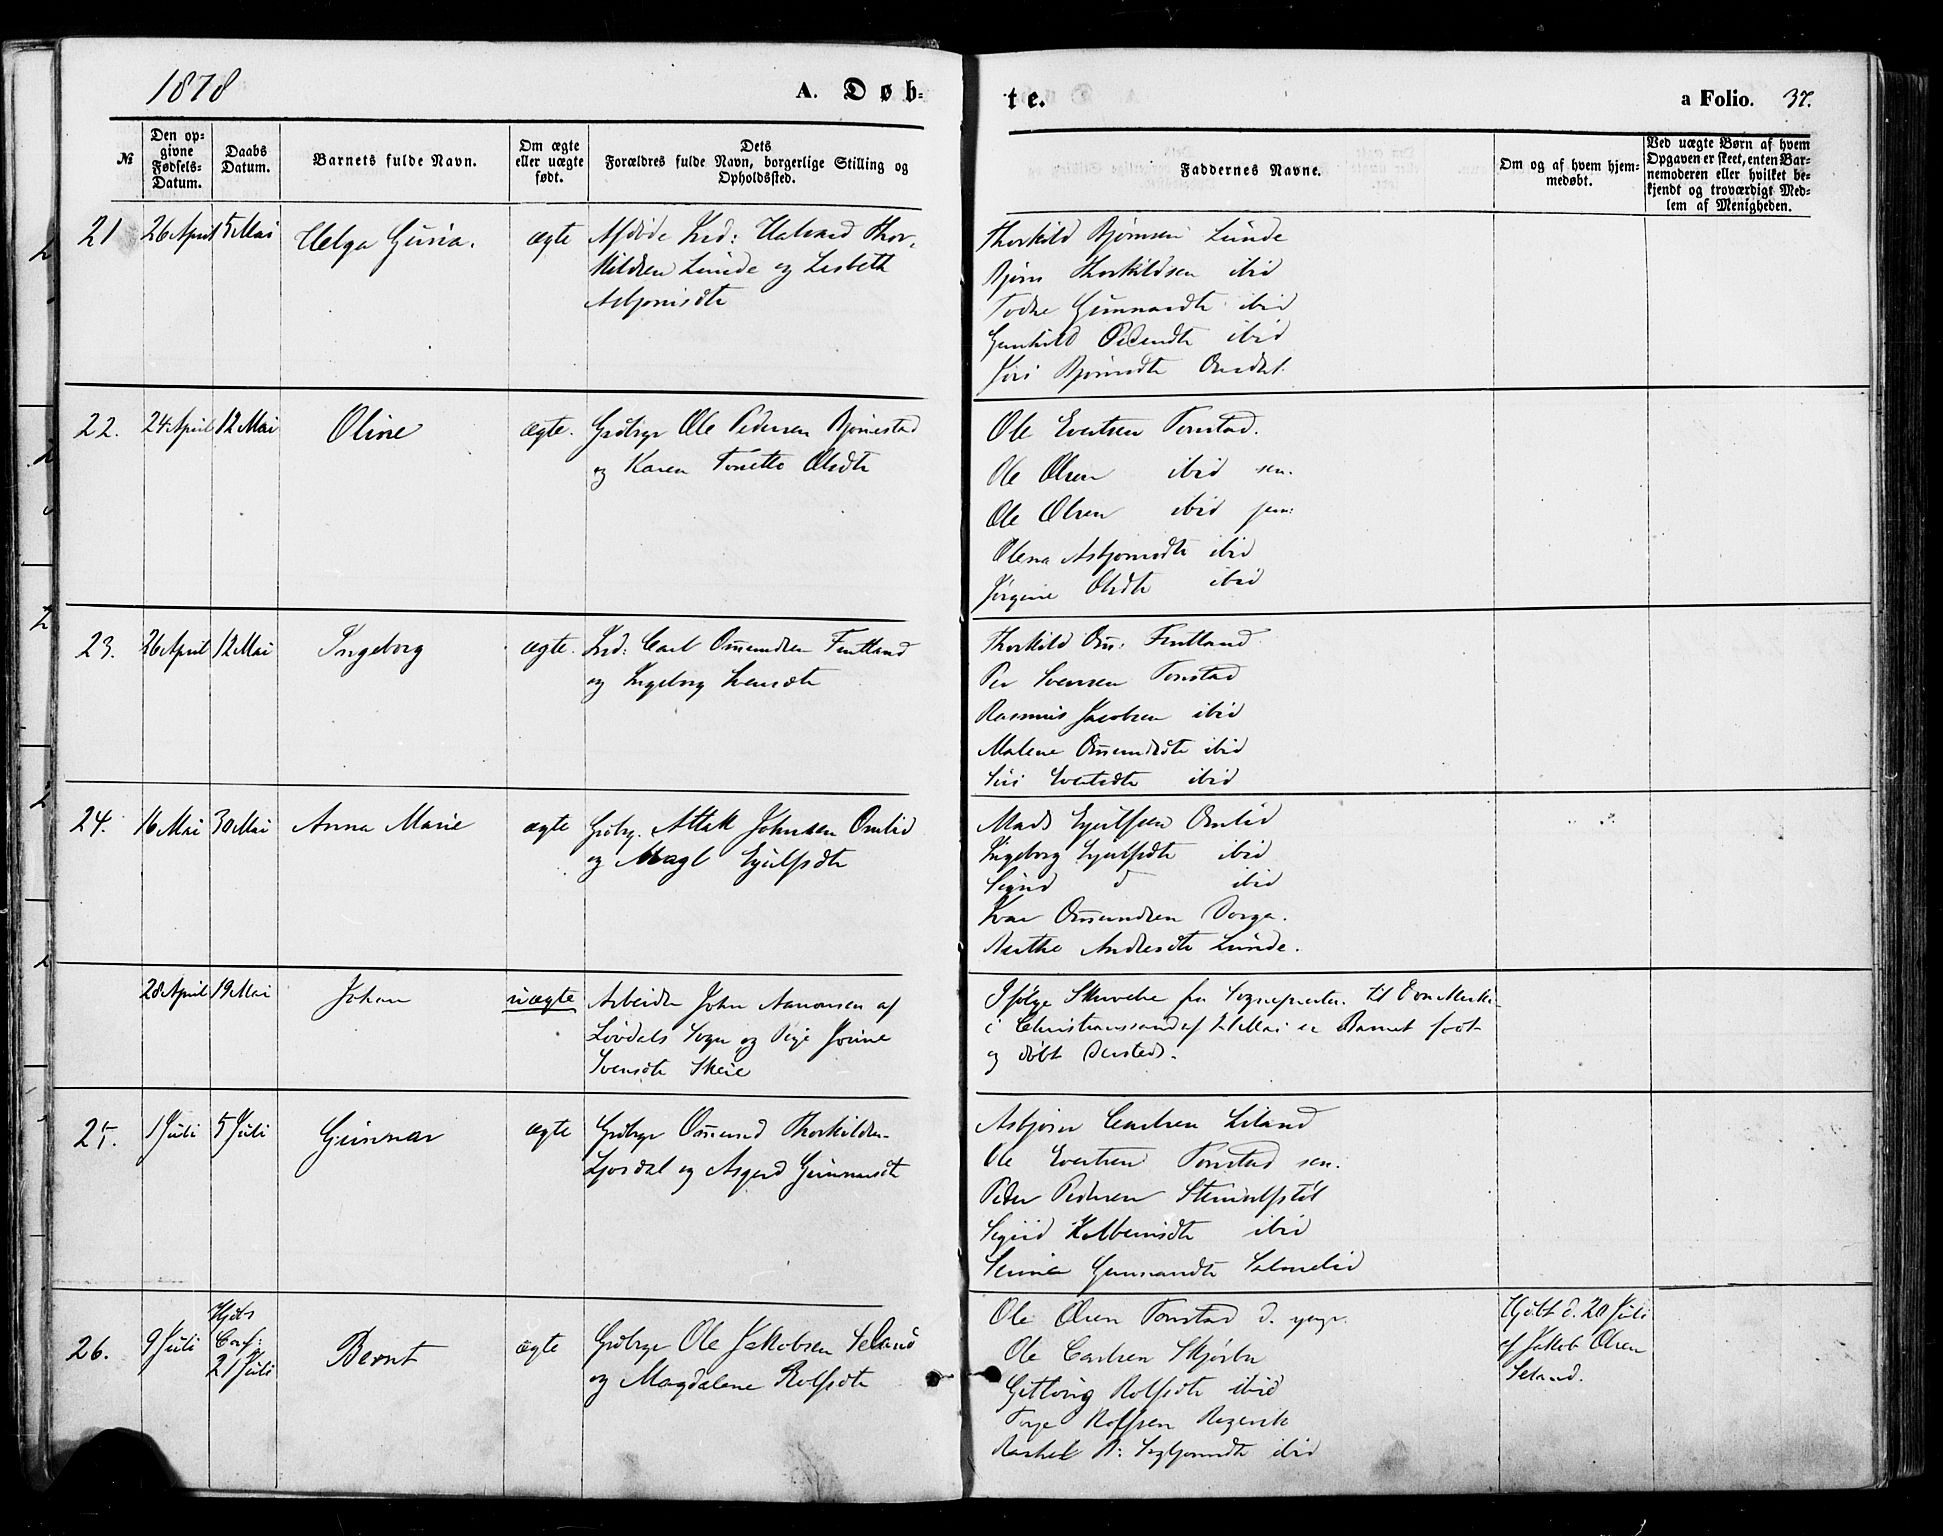 1878
A. Døb-
te.
a Folio. 37.
№
Den op-
givne
Fødsels-
Datum.
Daabs
Datum.
Barnets fulde Navn.
Om ægte
eller uægte
født.
Dets
Forældres fulde Navn, borgerlige Stilling og
Opholdssted.
Faddernes Navne.
Om og af hvem hjem-
medøbt.
Ved uægte Børn af hvem
Opgaven er skeet, enten Bar-
nemoderen eller hvilket be-
kjendt og troværdigt Med-
lem af Menigheden.
21 26 April 5 Mai
ægte
Afdøde Ind: Halvard Thor-
kildsen Lunde og Lisbeth
Asbjørnsdtr
Thorkild Bjørnsen Lunde
Bjørn Thorkildsen ibid
Gunnarsdtr ibid
Gunhild Pedersdtr ibid
Siri Bjørnsdtr Ousdal.
22. 24 April 12 Mai
Oline
ægte.
Grdbrgr Ole Pedersen Bjørnestad
og Karen Tonette Olsdtr
Ole Evertsen Tonstad.
Ole Olsen ibid sen.
Ole Olsen ibid jun:
Olena Asbjørnsdtr ibid
Jørgine Olsdtr ibid
23. 26 April 12 Mai
Ingeborg
ægte.
Ind: Carl Omundsen Fintland
og Ingeborg Svensdtr
Thorkild Om: Fintland
Per Svensen Tonstad
Rasmus Jacobsen ibid
Malene Omundsdtr ibid
Siri Evertsdtr ibid
24. 16 Mai 30 Mai
Anna Marie
ægte
Grdbrg. Atlak Johnsen Omlid
og Magl Ejulfsdtr
Mads Ejulfsen Omlid
Ingeborg Ejulfsdtr ibid
Sigrid d ibid
Ivar Omundsen Dorga.
Berthe Andersdtr Lunde.
28 April 19 Mai
Johan
uægte
Arbeider John Aanonsen af
Løvdals Sogn og Pige Jorine
Svensdtr Skeie
Ifølge Skrivelse fra Sognepresten til Domkirken
i Christianssand af 21 Mai er Barnet født
og døbt dersteds.
25. 1 Juli 5 Juli
Gunnar
ægte
Grdbrgr Omund Thorkildsen
Ljosdal og Asgerd Gunnarsdtr
Asbjørn Carlsen Liland
Ole Evertsen Tonstad sen.
Peder Pedersen
Sigrid Kolbeinsdtr ibid
Gunnarsdtr
26. 9 Juli
Hjdbs
Conf:
21 Juli
Bernt
ægte
Grdbrgr Ole Jakobsen Seland
og Magdalene Rolfsdtr
Ole Olsen Tonstad d. yngr.
Ole Carlsen Skjørbu
Gitlaug Rolfsdtr ibid
Torje Rolfsen Regevik
Rachel B: ibid
Hjdbt d. 20 Juli
af Jakob Olsen
Seland.